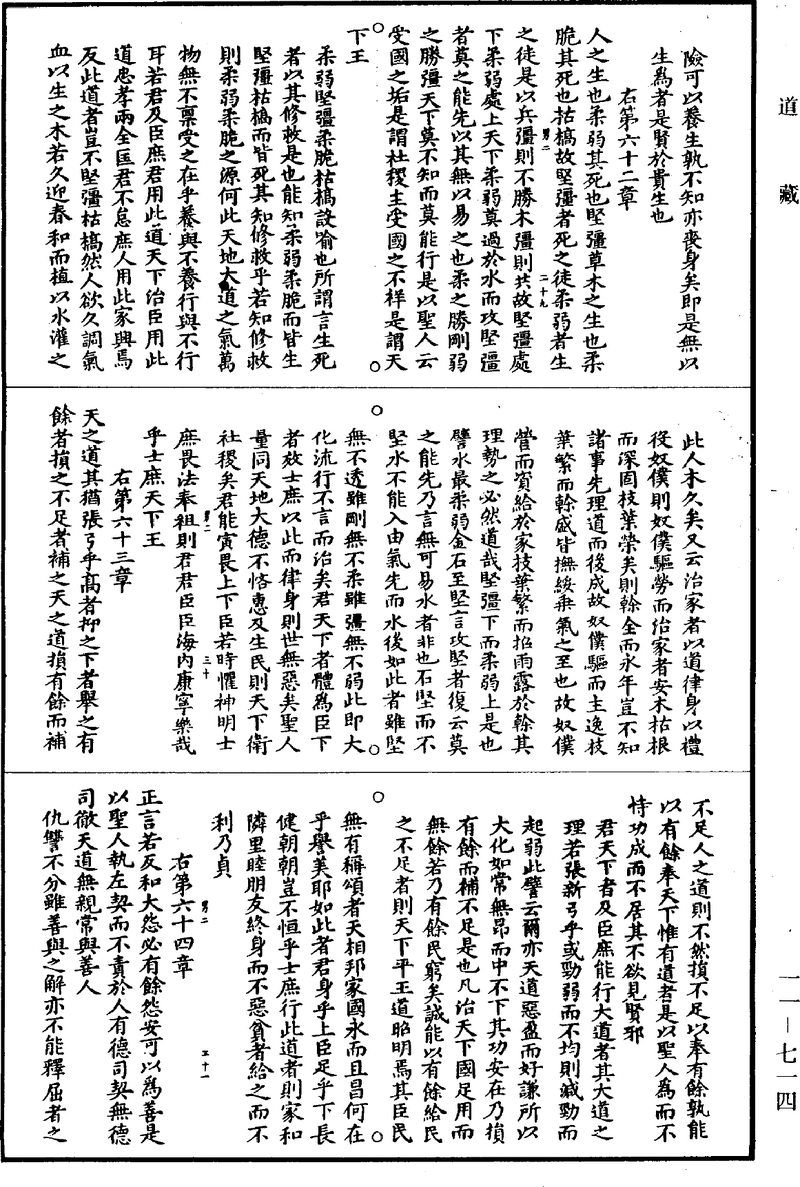 道藏
險可以養生孰不知亦喪身矣即是無以
生為者是賢於貴生也
右第六十二章
人之生也柔弱其死也堅彊草木之生也柔
脆其死也枯槁故堅彊者死之徒柔弱者生
之徒是以兵彊則不勝木彊則共故堅彊處
男二
二十九
下柔弱處上天下柔弱莫過於水而攻堅彊
者莫之能先以其無以易之也柔之勝剛弱
之勝彊天下莫不知而莫能行是以聖人云
受國之垢是謂社稷主受國之不祥是謂天
下王
柔弱堅彊柔脆枯槁設喻也所謂言生死
者以其修救是也能知柔弱柔脆而皆生
堅彊枯槁而皆死其知修救乎若知修救
則柔弱柔脆之源何此天地大道之氣萬
物無不稟受之在乎養與不養行與不行
耳若君及臣庶君用此道天下治臣用此
道忠孝兩全匡君不怠庶人用此家興焉
反此道者豈不堅彊枯槁然人欲久調氣
血以生之木若久迎春和而植以水灌之
此人木久矣又云治家者以道律身以禮
役奴僕則奴僕驅勞而治家者安木枯根
而深固枝葉榮矣則榦全而永年豈不知
諸事先理道而後成故奴僕驅而主逸枝
葉繁而榦盛皆撫綏乘氣之至也故奴僕
營而資給於家枝葉繁而招雨露於榦其
理勢之必然道哉堅彊下而柔弱上是也
譬水最柔弱金石至堅言攻堅者復云莫
之能先乃言無可易水者非也石堅而不
堅水不能入由氣先而水後如此者雖堅
無不透雖剛無不柔雖彊無不弱此即大
化流行不言而治矣君天下者體為臣下
者效士庶以此而律身則世無惡矣聖人
量同天地大德不悋惠及生民則天下衛
社稷矣君能寅畏上下臣若時懼神明士
男二
三十
庶畏法奉祖則君君臣臣海內康寧樂哉
乎士庶天下王
右第六十三章
天之道其猶張弓乎高者抑之下者舉之有
餘者損之不足者補之天之道損有餘而補
不足人之道則不然損不足以奉有餘孰能
以有餘奉天下惟有道者是以聖人為而不
恃功成而不居其不欲見賢邪
君天下者及臣庶能行大道者其大道之
理若張新弓乎或勁弱而不均則減勁而
起弱此譬云爾亦天道惡盈而好謙所以
大化如常無昂而中不下其功安在乃損
有餘而補不足是也凡治天下國足用而
無餘若乃有餘民窮矣誠能以有餘給民
之不足者則天下平王道昭明焉其臣民
無有稱頌者天相邦家國永而且昌何在
乎譽美耶如此者君身乎上臣足乎下長
健朝朝豈不恒乎士庶行此道者則家和
隣里睦朋友終身而不惡貧者給之而不
利乃貞
男二
三十一
右第六十四章
正言若反和大怨必有餘怨安可以為善是
以聖人執左契而不責於人有德司契無德
司徹天道無親常與善人
仇讐不分雖善與之解亦不能釋屈者之
一一－七一四